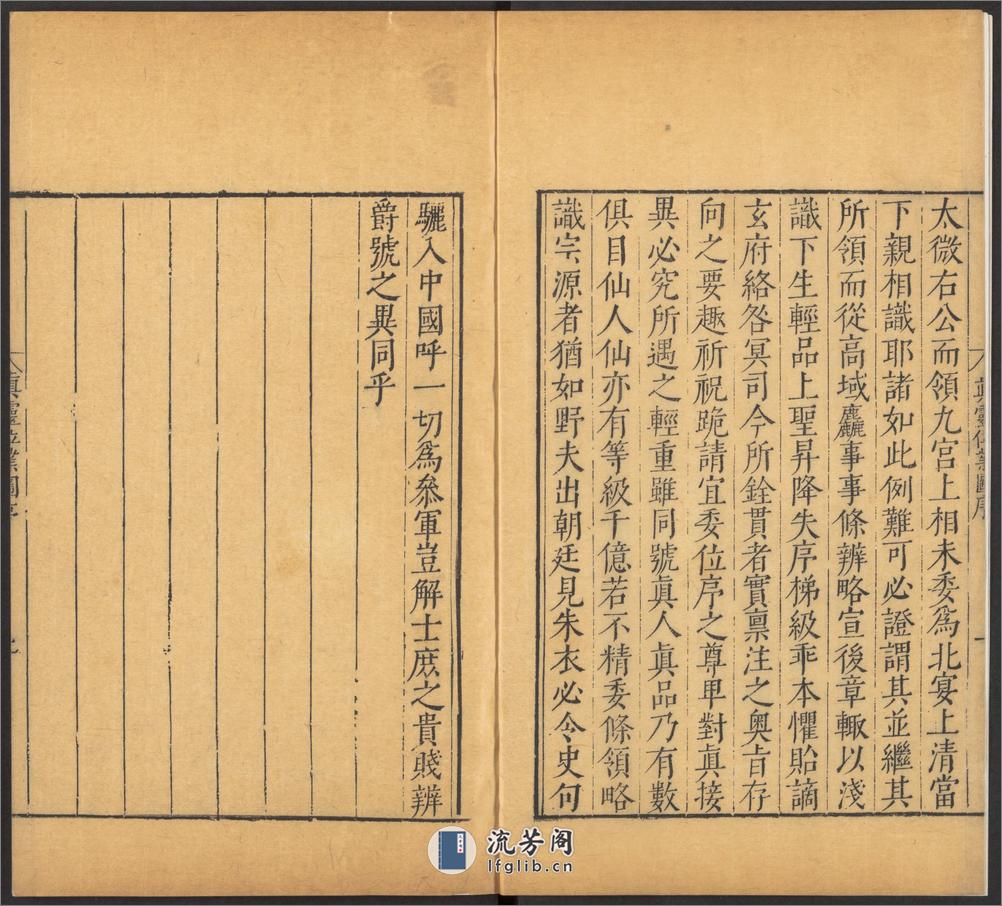 太微右公而領九宮上相未委爲北宴上清當
下親相識耶諸如此例難可必證謂其並繼其
所領而從高域麤事事條辨略宣後章輙以淺
識下生輕品上聖昇降失序梯級乖本懼貽謫
玄府絡咎冥司今所銓貫者實稟注之奥旨存
向之要趣祈祝跪請宜委位序之尊卑對眞接
異必究所遇之輕重雖同號眞人眞品乃有數
俱目仙人仙亦有等級千億若不精委條領略
識宗源者猶如野夫出朝廷見朱衣必令史句
驪入中國呼一切爲叅軍豈解士庶之貴賤辨
爵號之異同乎
流芳阁
lfglib.cn